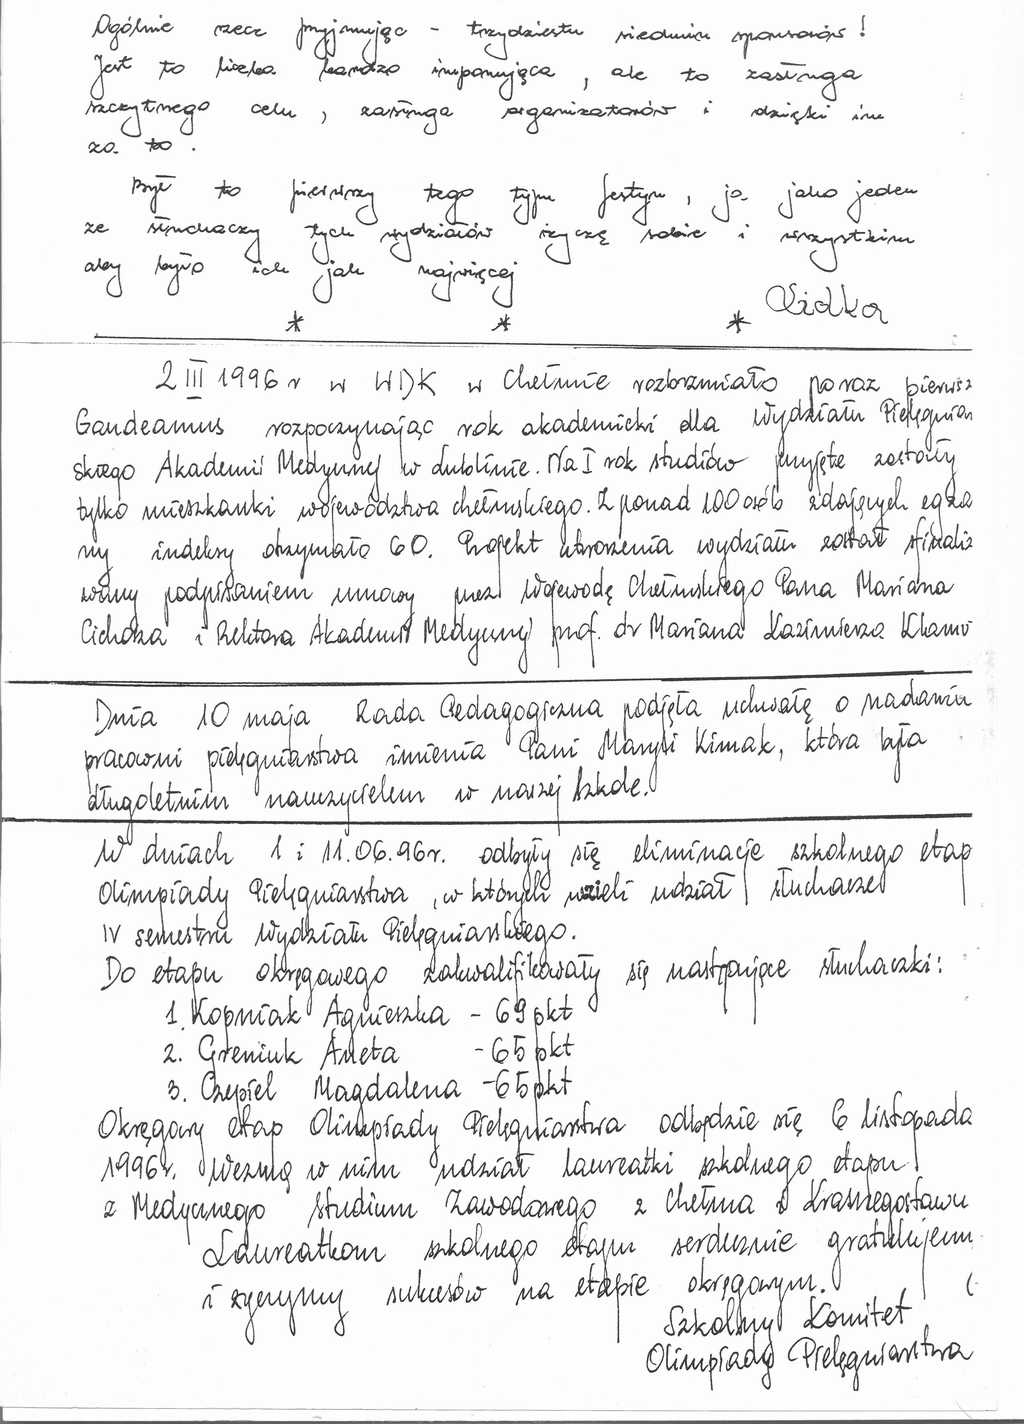 Ogólnie rzecz przyjmując - trzydziestu siedmiu sponsorów!
Jest to liczba bardzo imponująca, ale to zasługa
szczytnego celu, zasługa organizatorów i dzięki im
za to.
Był to pierwszy tego typu festyn, ja jako jeden
ze słuchaczy tych wydziałów życzę sobie i wszystkim
aby było ich jak najwięcej
Lidka
* * *
2 III 1996 r w WDK w Chełmie rozbrzmiało poraz pierwsz
Gaudeamus rozpoczynając rok akademicki dla Wydziału Pielęgniar
skiego Akademii Medycznej w Lublinie. Na I rok studiów przyjęte zostały
tylko mieszkanki województwa chełmskiego. Z ponad 100 osób zdających egza
ny indeksy otrzymało 60. Projekt utworzenia wydziału został sfinaliz
zowany podpisaniem umowy przez Wojewodę Chełmskiego Pana Mariana
Cichosza i Rektora Akademii Medycznej prof. dr Mariana Kazimierza Klamu
Dnia 10 maja Rada Pedagogiczna podjęła uchwałę o nadaniu
pracowni pielęgniarstwa imienia Pani Marysi Kimak, która była
długoletnim nauczycielem w naszej Szkole.
W dniach 1 i 11.06.96r. odbyły się eliminacje szkolnego etap
Olimpiady Pielęgniarstwa, w których wzieli udział słuchacze
IV semestru Wydziału Pielęgniarskiego.
Do etapu okręgowego zakwalifikowały się następujące słuchaczki:
1. Kopniak Agnieszka - 69 pkt
2. Greniuk Aneta - 65 pkt
3. Czepiel Magdalena - 65 pkt
Okręgowy etap Olimpiady Pielęgniarstwa odbędzie się 6 listopada
1996r. Wezmą w nim udział laureatki szkolnego etapu
z Medycznego Studium Zawodowego z Chełma i Krasnegostawu
Laureatkom szkolnego etapu serdecznie gratulujemy
i życzymy sukcesów na etapie okręgowym.
Szkolny Komitet
Olimpiady Pielęgniarstwa